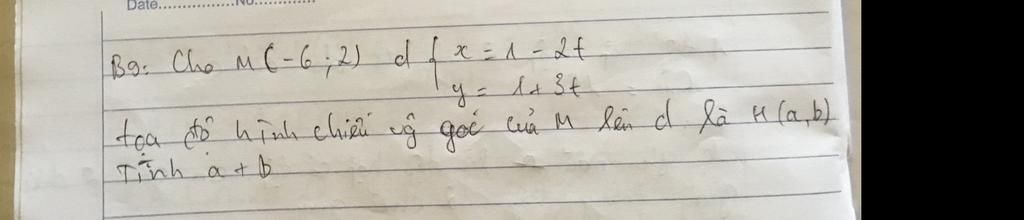 Date...............No.............
B9: Cho M(-6;2) d { x = 1 - 2t
y = 1+3t
tọa độ hình chiếu vg góc của M lên d là H(a,b)
Tính a + b